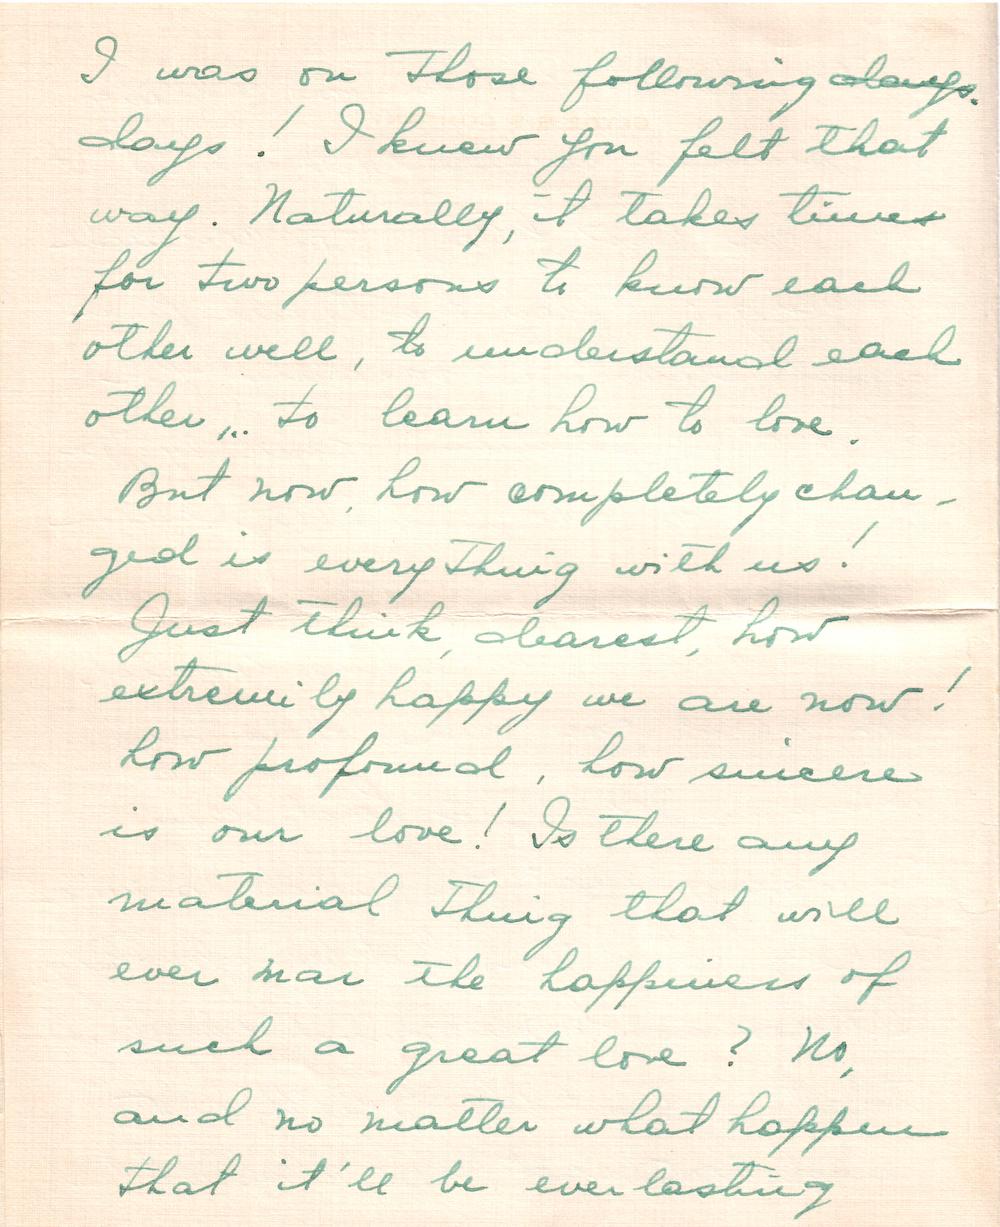 I was on those following days.
days! I knew you felt that
way. Naturally, it takes times
for two persons to know each
other well, to understand each
other,.. to learn how to love.
But now, how completely chan-
ged is everything with us!
Just think, dearest, how
extremily happy we are now!
how profound, how sincere
is our love! Is there any
material thing that will
ever mar the happiness of
such a great love? No,
and no matter what happen
that it'll be everlasting